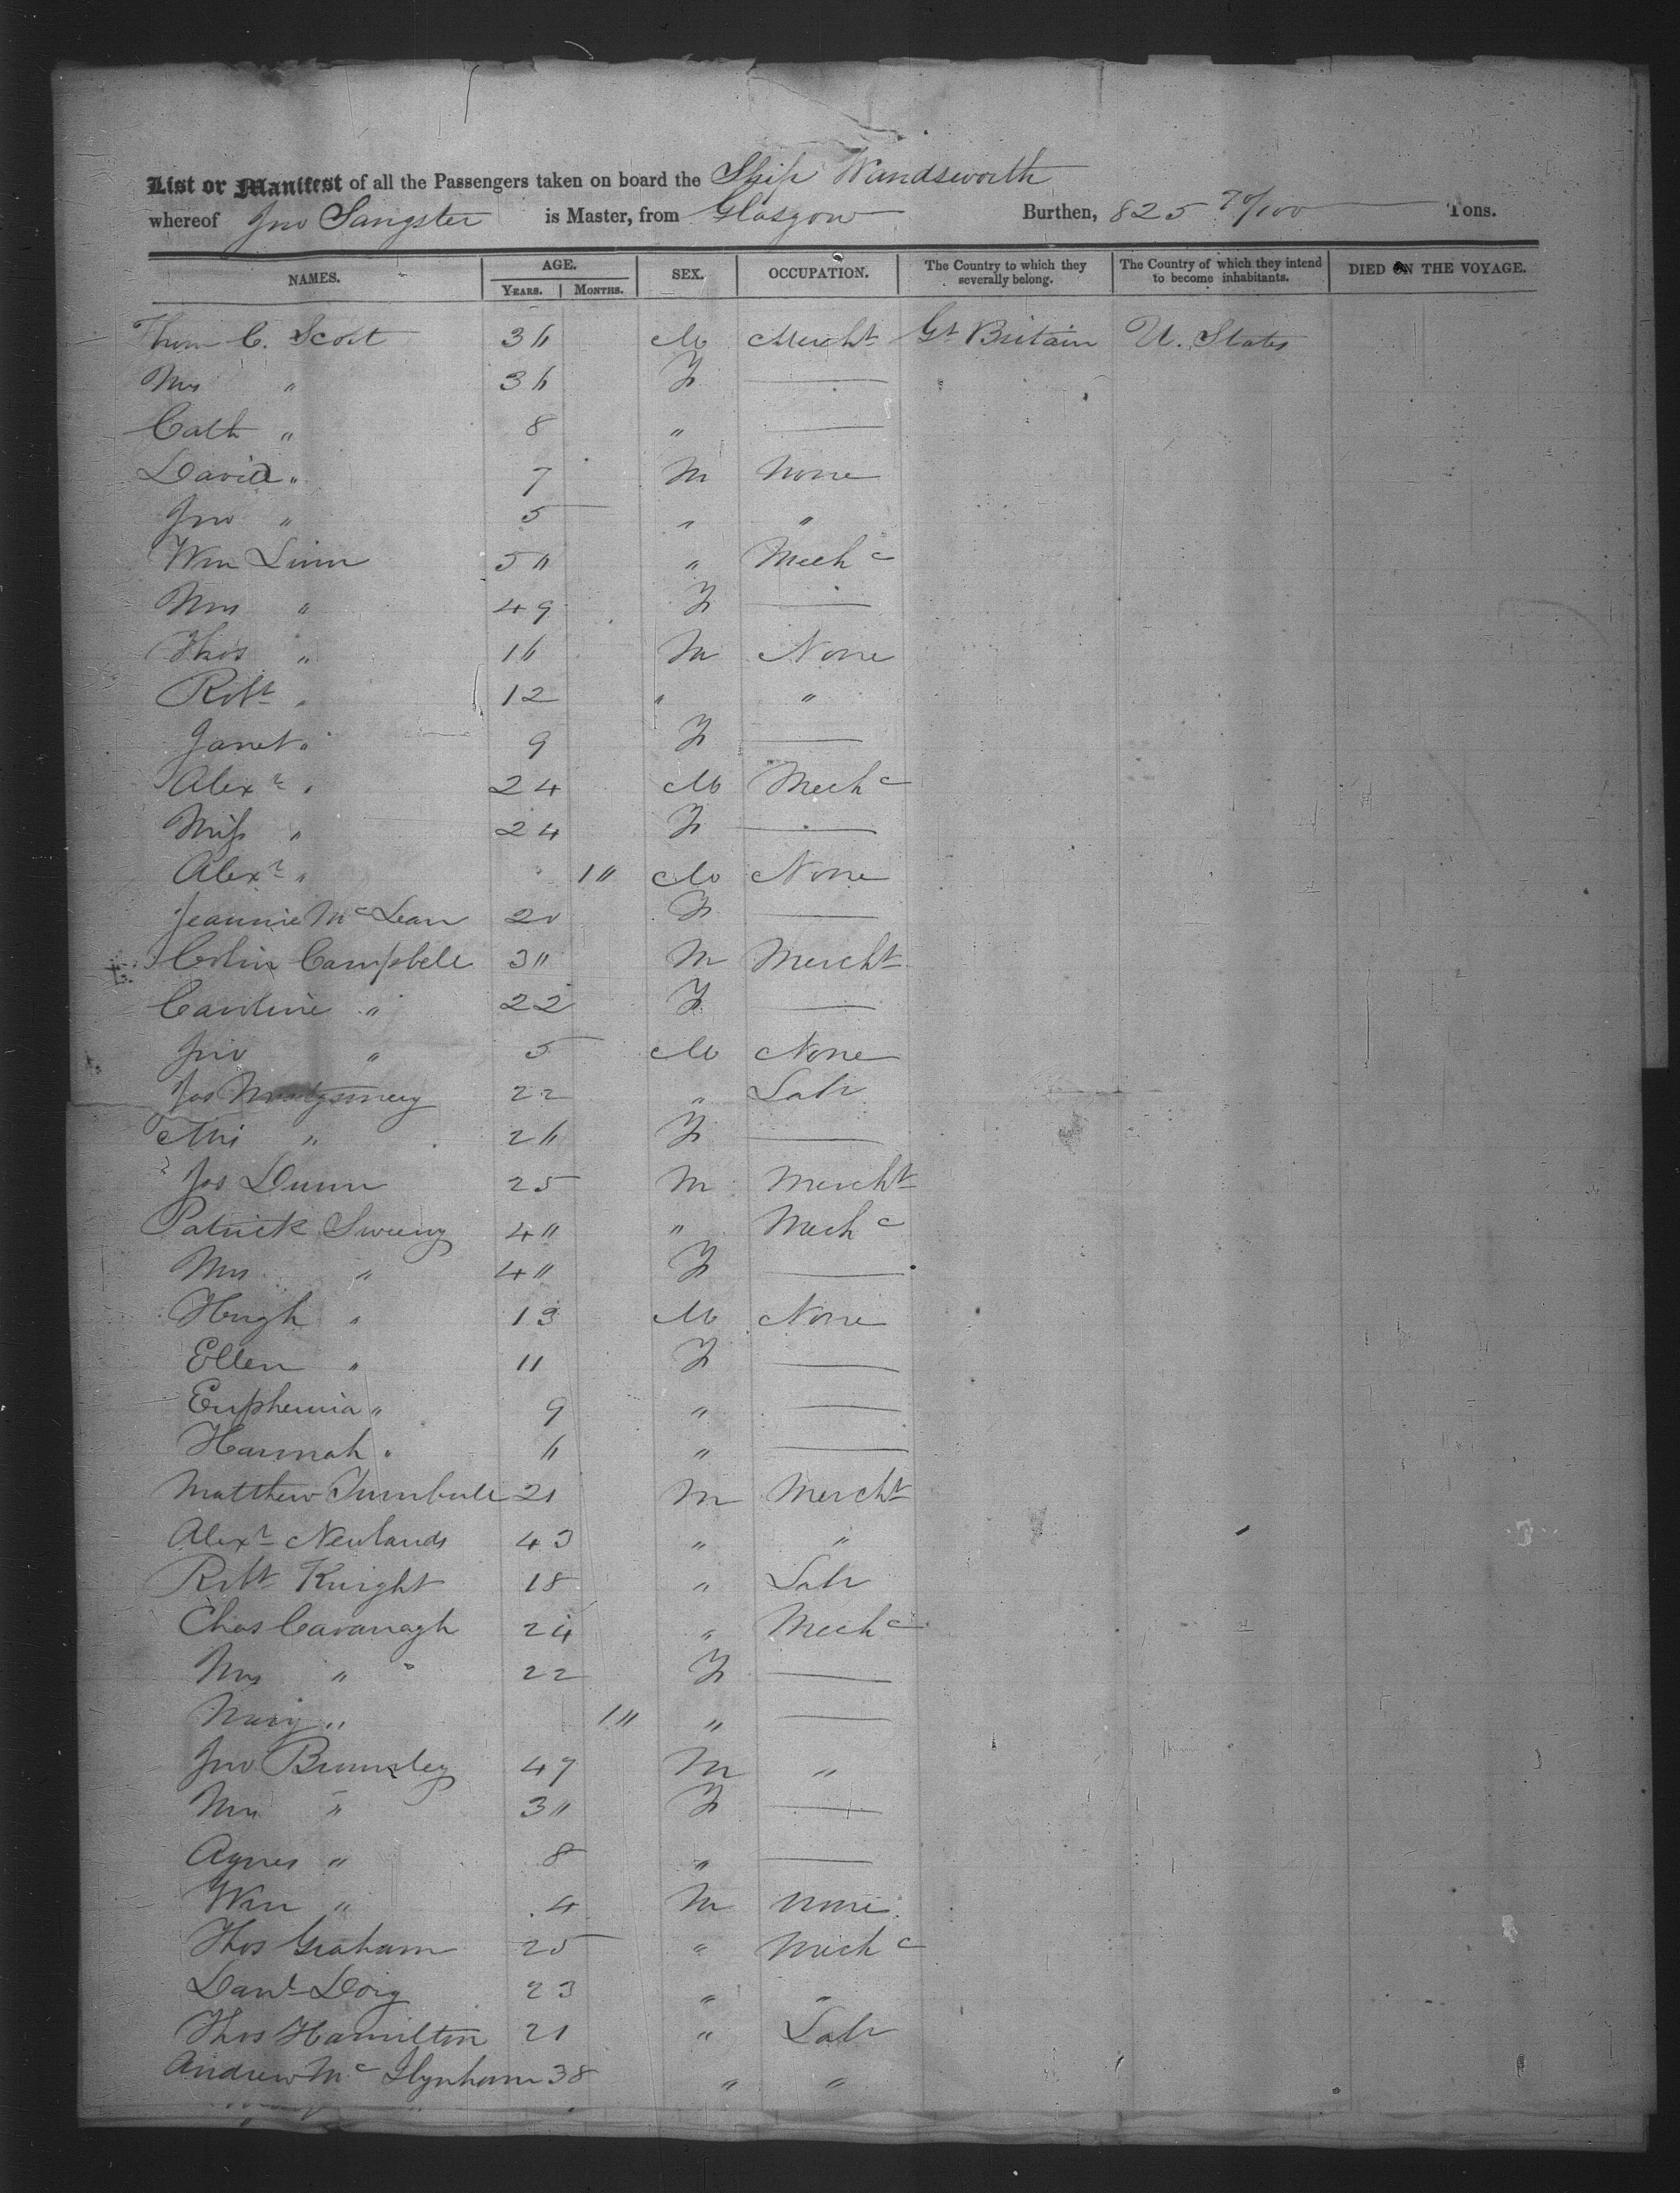 List or Manifest of all the Passengers taken on board the Ship Wandsworth
whereof Jno Sangster is Master, from Glasgow Burthen, 825 70/100 Tons.
NAMES. AGE. SEX. OCCUPATION. The Country to which they severally belong. The Country of which they intend to become inhabitants. DIED ON THE VOYAGE.
YEARS. MONTHS.
C. Scott 36 M Mercht Gt Britain U. States
Mrs " 36 F
Cath " 8 "
David " 7 M None
Jno " 5 " "
Wm Linn 50 " Mechc
Mrs " 49 F
Thos " 16 M None
Robt " 12 " "
Janet " 9 F
Alexr " 24 M Mechc
Miss " 24 F
Alexr " 10 M None
Jeannie McLean 20 F
Colin Campbell 30 M Mercht
Caroline " 22 F
Jno " 5 M None
Jas Montgomery 22 " Labr
Mrs " 26 F
Jos Dunn 25 M Mercht
Patrick Sweeny 40 " Mechc
Mrs " 40 F
Hugh " 13 M None
Ellen " 11 F
Euphemia " 9 "
Hannah " 6 "
Matthew Turnbull 21 M Mercht
Alexr Newlands 43 " "
Robt Knight 18 " Labr
Chas Cavanagh 24 " Mechc
Mrs " 22 F
Mary " 10 "
Jno Brumley 47 M "
Mrs " 30 F
Agnes " 8 "
Wm " 4 M None
Thos Graham 25 " Mechc
Danl Doig 23 " "
Thos Hamilton 21 " Labr
Andrew Mc 38 " "